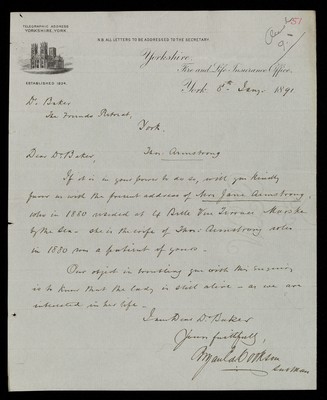 TELEGRAPHIC ADDRESS
YORKSHIRE, YORK.
N.B. ALL LETTERS TO BE ADDRESSED TO THE SECRETARY.
Yorkshire
Fire and Life Insurance Office.
ESTABLISHED 1824.
York. 8th Jany. 1891
Dr Baker
The Friends Retreat,
York.
Dear Dr Baker,
Thos. Armstrong
If it is in your power to do so, will you kindly
favor us with the present address of Mrs Jane Armstrong
who in 1880 resided at 4 Belle Vue Terrace Marske
by the Sea. She is the wife of Thos. Armstrong who
in 1880 was a patient of yours.
Our object in troubling you with this enquiry
is to know that the lady is still alive - as we are
interested in her life.
I am Dear Dr Baker
Yours faithfully,